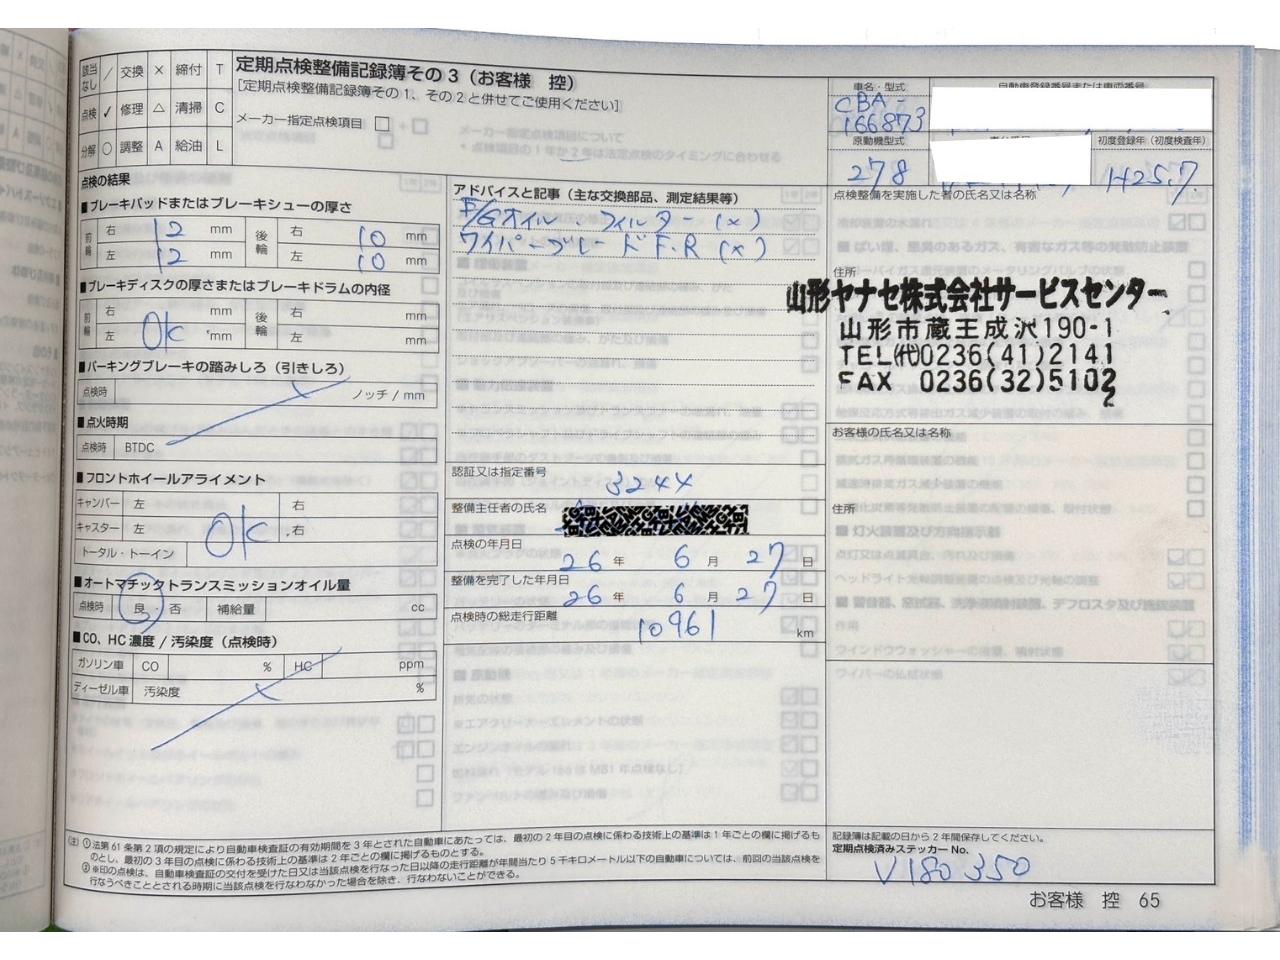 該当なし / 交換 × 締付 T
点検 ✓ 修理 △ 清掃 C
分解 ○ 調整 A 給油 L
定期点検整備記録簿その3（お客様 控）
[定期点検整備記録簿その1、その2と併せてご使用ください]
メーカー指定点検項目 □
車名・型式
CBA-
166873
自動車登録番号または車両番号
原動機型式
278
初度登録年（初度検査年）
H25.7.
点検の結果
■ブレーキパッドまたはブレーキシューの厚さ
前輪 右 12 mm 後輪 右 10 mm
左 12 mm 左 10 mm
■ブレーキディスクの厚さまたはブレーキドラムの内径
前輪 右 mm 後輪 右 mm
左 Ok mm 左 mm
■パーキングブレーキの踏みしろ（引きしろ）
点検時 ノッチ / mm
■点火時期
点検時 BTDC
■フロントホイールアライメント
キャンバー 左 右
キャスター 左 Ok 右
トータル・トーイン
■オートマチックトランスミッションオイル量
点検時 良 否 補給量 cc
■CO、HC濃度 / 汚染度（点検時）
ガソリン車 CO % HC ppm
ディーゼル車 汚染度 %
アドバイスと記事（主な交換部品、測定結果等）
E/Gオイル・フィルター (×)
ワイパーブレードF.R (×)
認証又は指定番号
3244
整備主任者の氏名
点検の年月日
26 年 6 月 27 日
整備を完了した年月日
26 年 6 月 27 日
点検時の総走行距離
10961 km
点検整備を実施した者の氏名又は名称
住所
山形ヤナセ株式会社サービスセンター
山形市蔵王成沢190-1
TEL(代)0236(41)2141
FAX 0236(32)5102
お客様の氏名又は名称
住所
(注) ①法第61条第2項の規定により自動車検査証の有効期間を3年とされた自動車にあたっては、最初の2年目の点検に係わる技術上の基準は1年ごとの欄に掲げるものとし、最初の3年目の点検に係わる技術上の基準は2年ごとの欄に掲げるものとする。
②※印の点検は、自動車検査証の交付を受けた日又は当該点検を行なった日以降の走行距離が年間当たり5千キロメートル以下の自動車については、前回の当該点検を行なうべきこととされる時期に当該点検を行なわなかった場合を除き、行なわないことができる。
記録簿は記載の日から2年間保存してください。
定期点検済みステッカーNo.
V180350
お客様 控 65